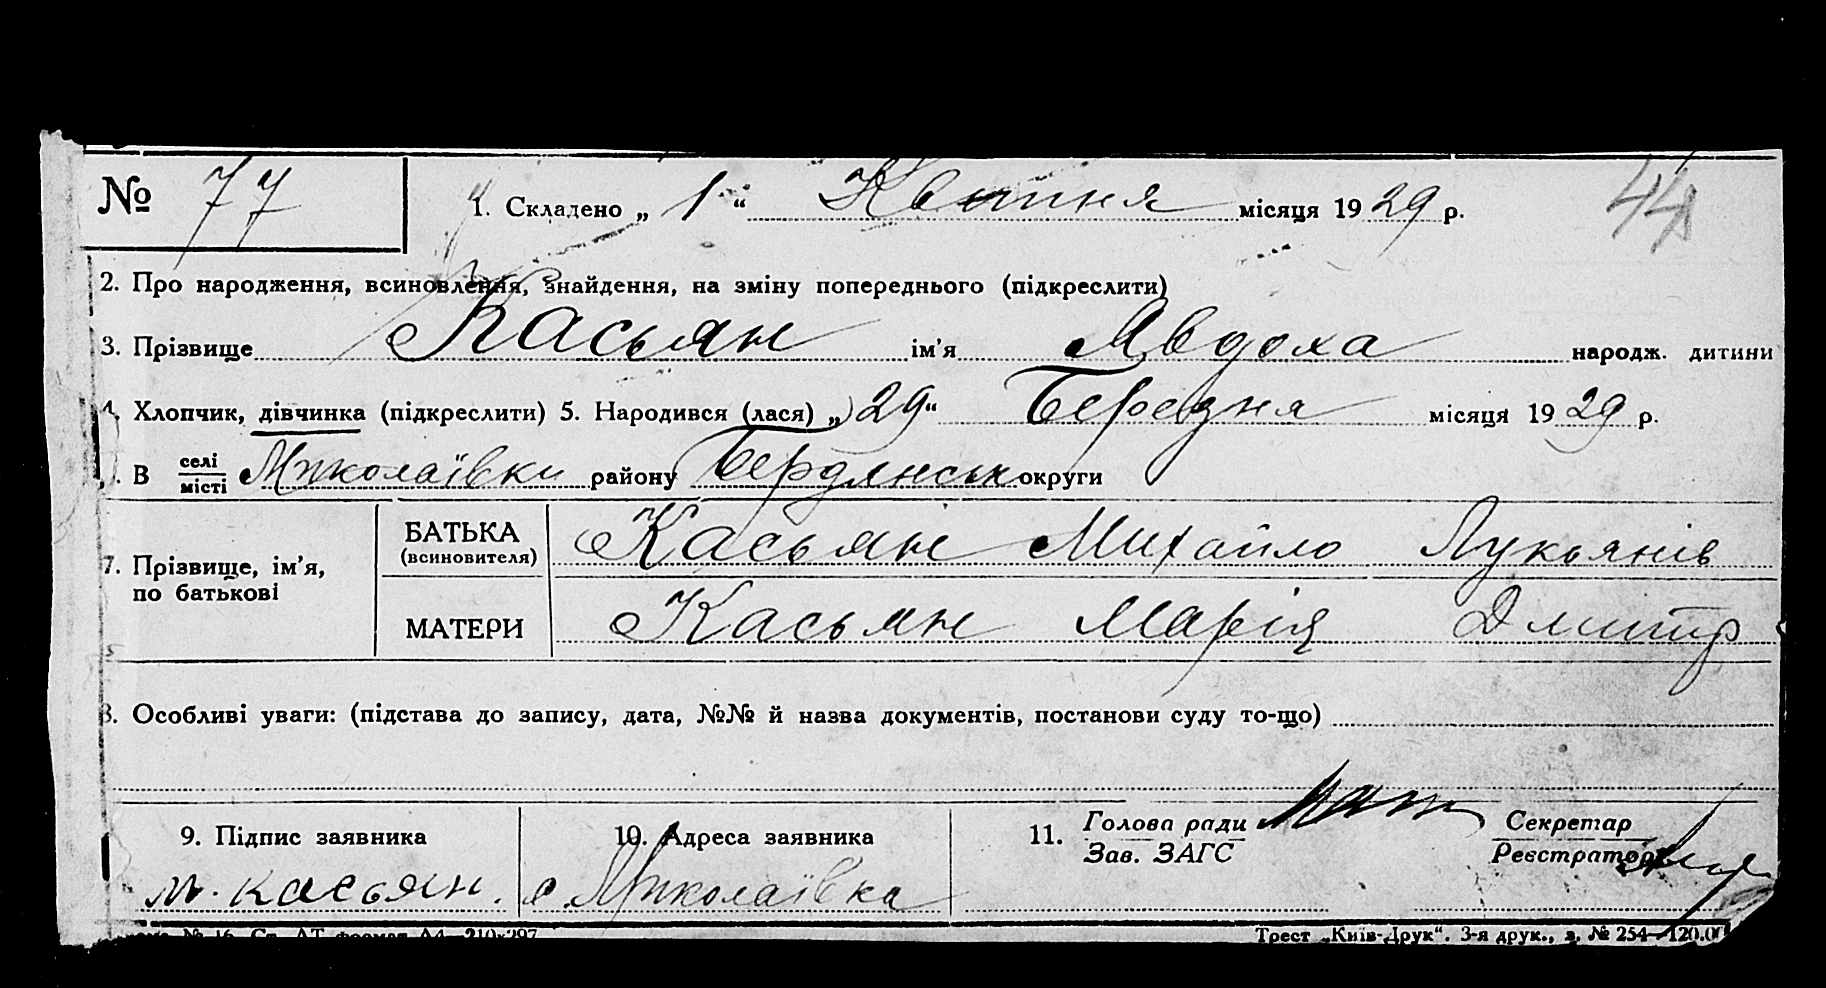 № 77
1. Складено „ 1 “ Квітня місяця 1929 р.
44
2. Про народження, всиновлення, знайдення, на зміну попереднього (підкреслити)
3. Прізвище Касьян ім'я Явдоха народж. дитини
4. Хлопчик, дівчинка (підкреслити) 5. Народився (лася) „ 29 “ Березня місяця 1929 р.
В селі/місті Миколаївки району Бердянськ округи
7. Прізвище, ім'я, по батькові
БАТЬКА (всиновителя) Касьян Михайло Лукьянів
МАТЕРИ Касьян Марія Дмитр
8. Особливі уваги: (підстава до запису, дата, №№ й назва документів, постанови суду то-що)
9. Підпис заявника
10. Адреса заявника
11. Голова ради
Зав. ЗАГС
Секретар
Реєстратор
м. касьян.
с. Миколаївка
№ 16. Ст. АТ формат А4—210×297
Трест „Київ-Друк“. 3-я друк., з. № 254—120.00